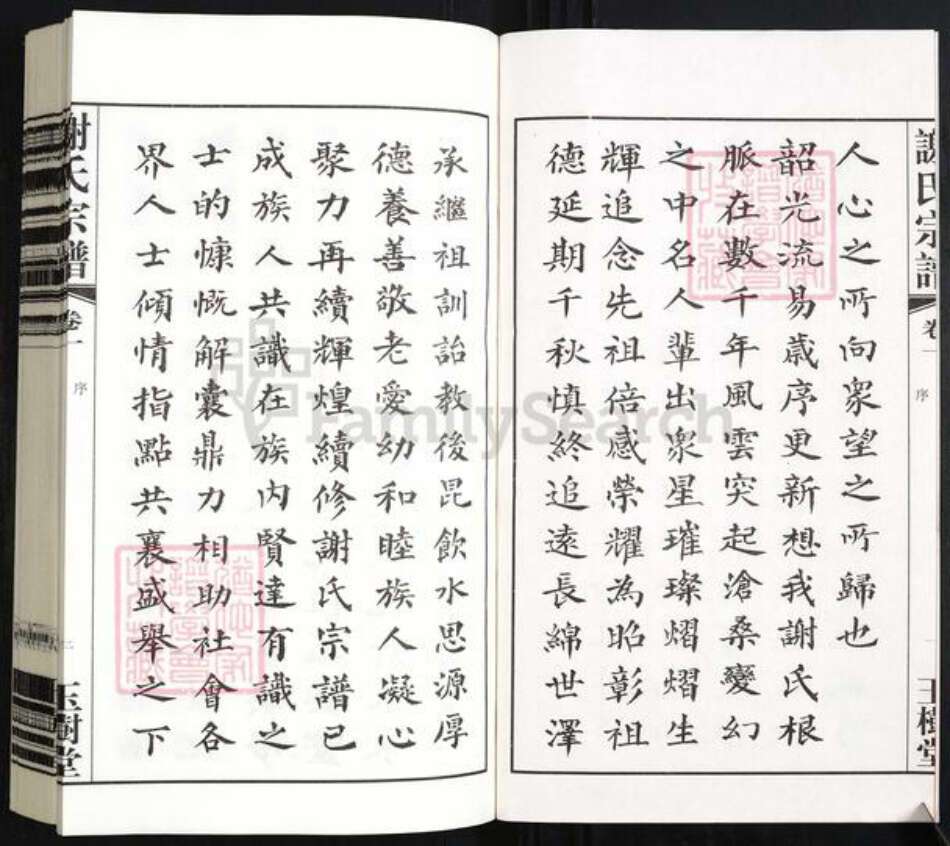 謝氏宗譜
卷一
序
一
玉樹堂
人心之所向衆望之所歸也
韶光流易歲序更新想我謝氏根
脈在數千年風雲突起滄桑變幻
之中名人輩出衆星璀璨熠熠生
輝追念先祖倍感榮耀為昭彰祖
德延期千秋慎終追遠長綿世澤
承繼祖訓詒教後昆飲水思源厚
德養善敬老愛幼和睦族人凝心
聚力再續輝煌續修謝氏宗譜已
成族人共識在族内賢達有識之
士的慷慨解囊鼎力相助社會各
界人士傾情指點共襄盛舉之下
謝氏宗譜
卷一
序
二
玉樹堂
FamilySearch